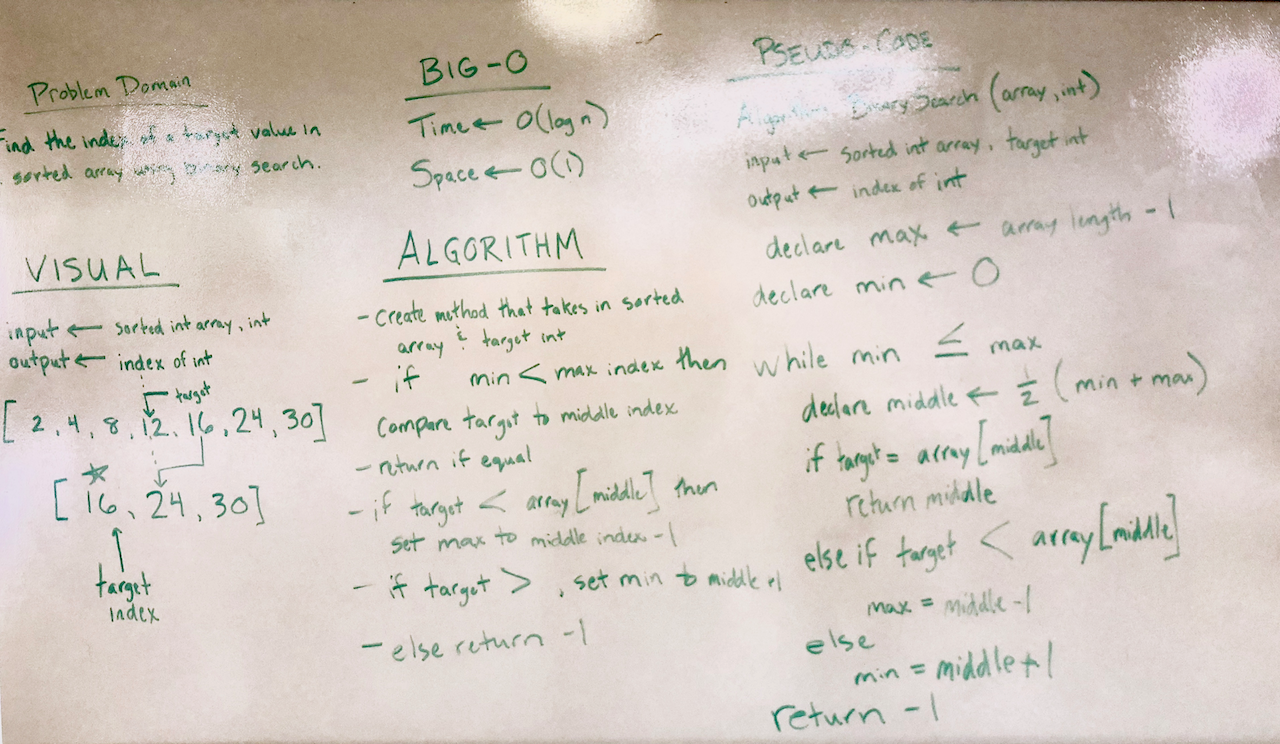 Problem Domain
Find the index of a target value in
sorted array using binary search.
VISUAL
input ← sorted int array, int
output ← index of int
target
[ 2, 4, 8, 12, 16, 24, 30]
[ 16, 24, 30]
target
index
BIG-O
Time ← O(log n)
Space ← O(1)
ALGORITHM
- Create method that takes in sorted
array & target int
- if min < max index then
Compare target to middle index
- return if equal
- if target < array[middle] then
set max to middle index -1
- if target > , set min to middle +1
- else return -1
PSEUDO-CODE
Algorithm Binary Search (array, int)
input ← sorted int array, target int
output ← index of int
declare max ← array length - 1
declare min ← 0
while min ≤ max
declare middle ← 1/2 (min + max)
if target = array[middle]
return middle
else if target < array[middle]
max = middle -1
else
min = middle +1
return -1